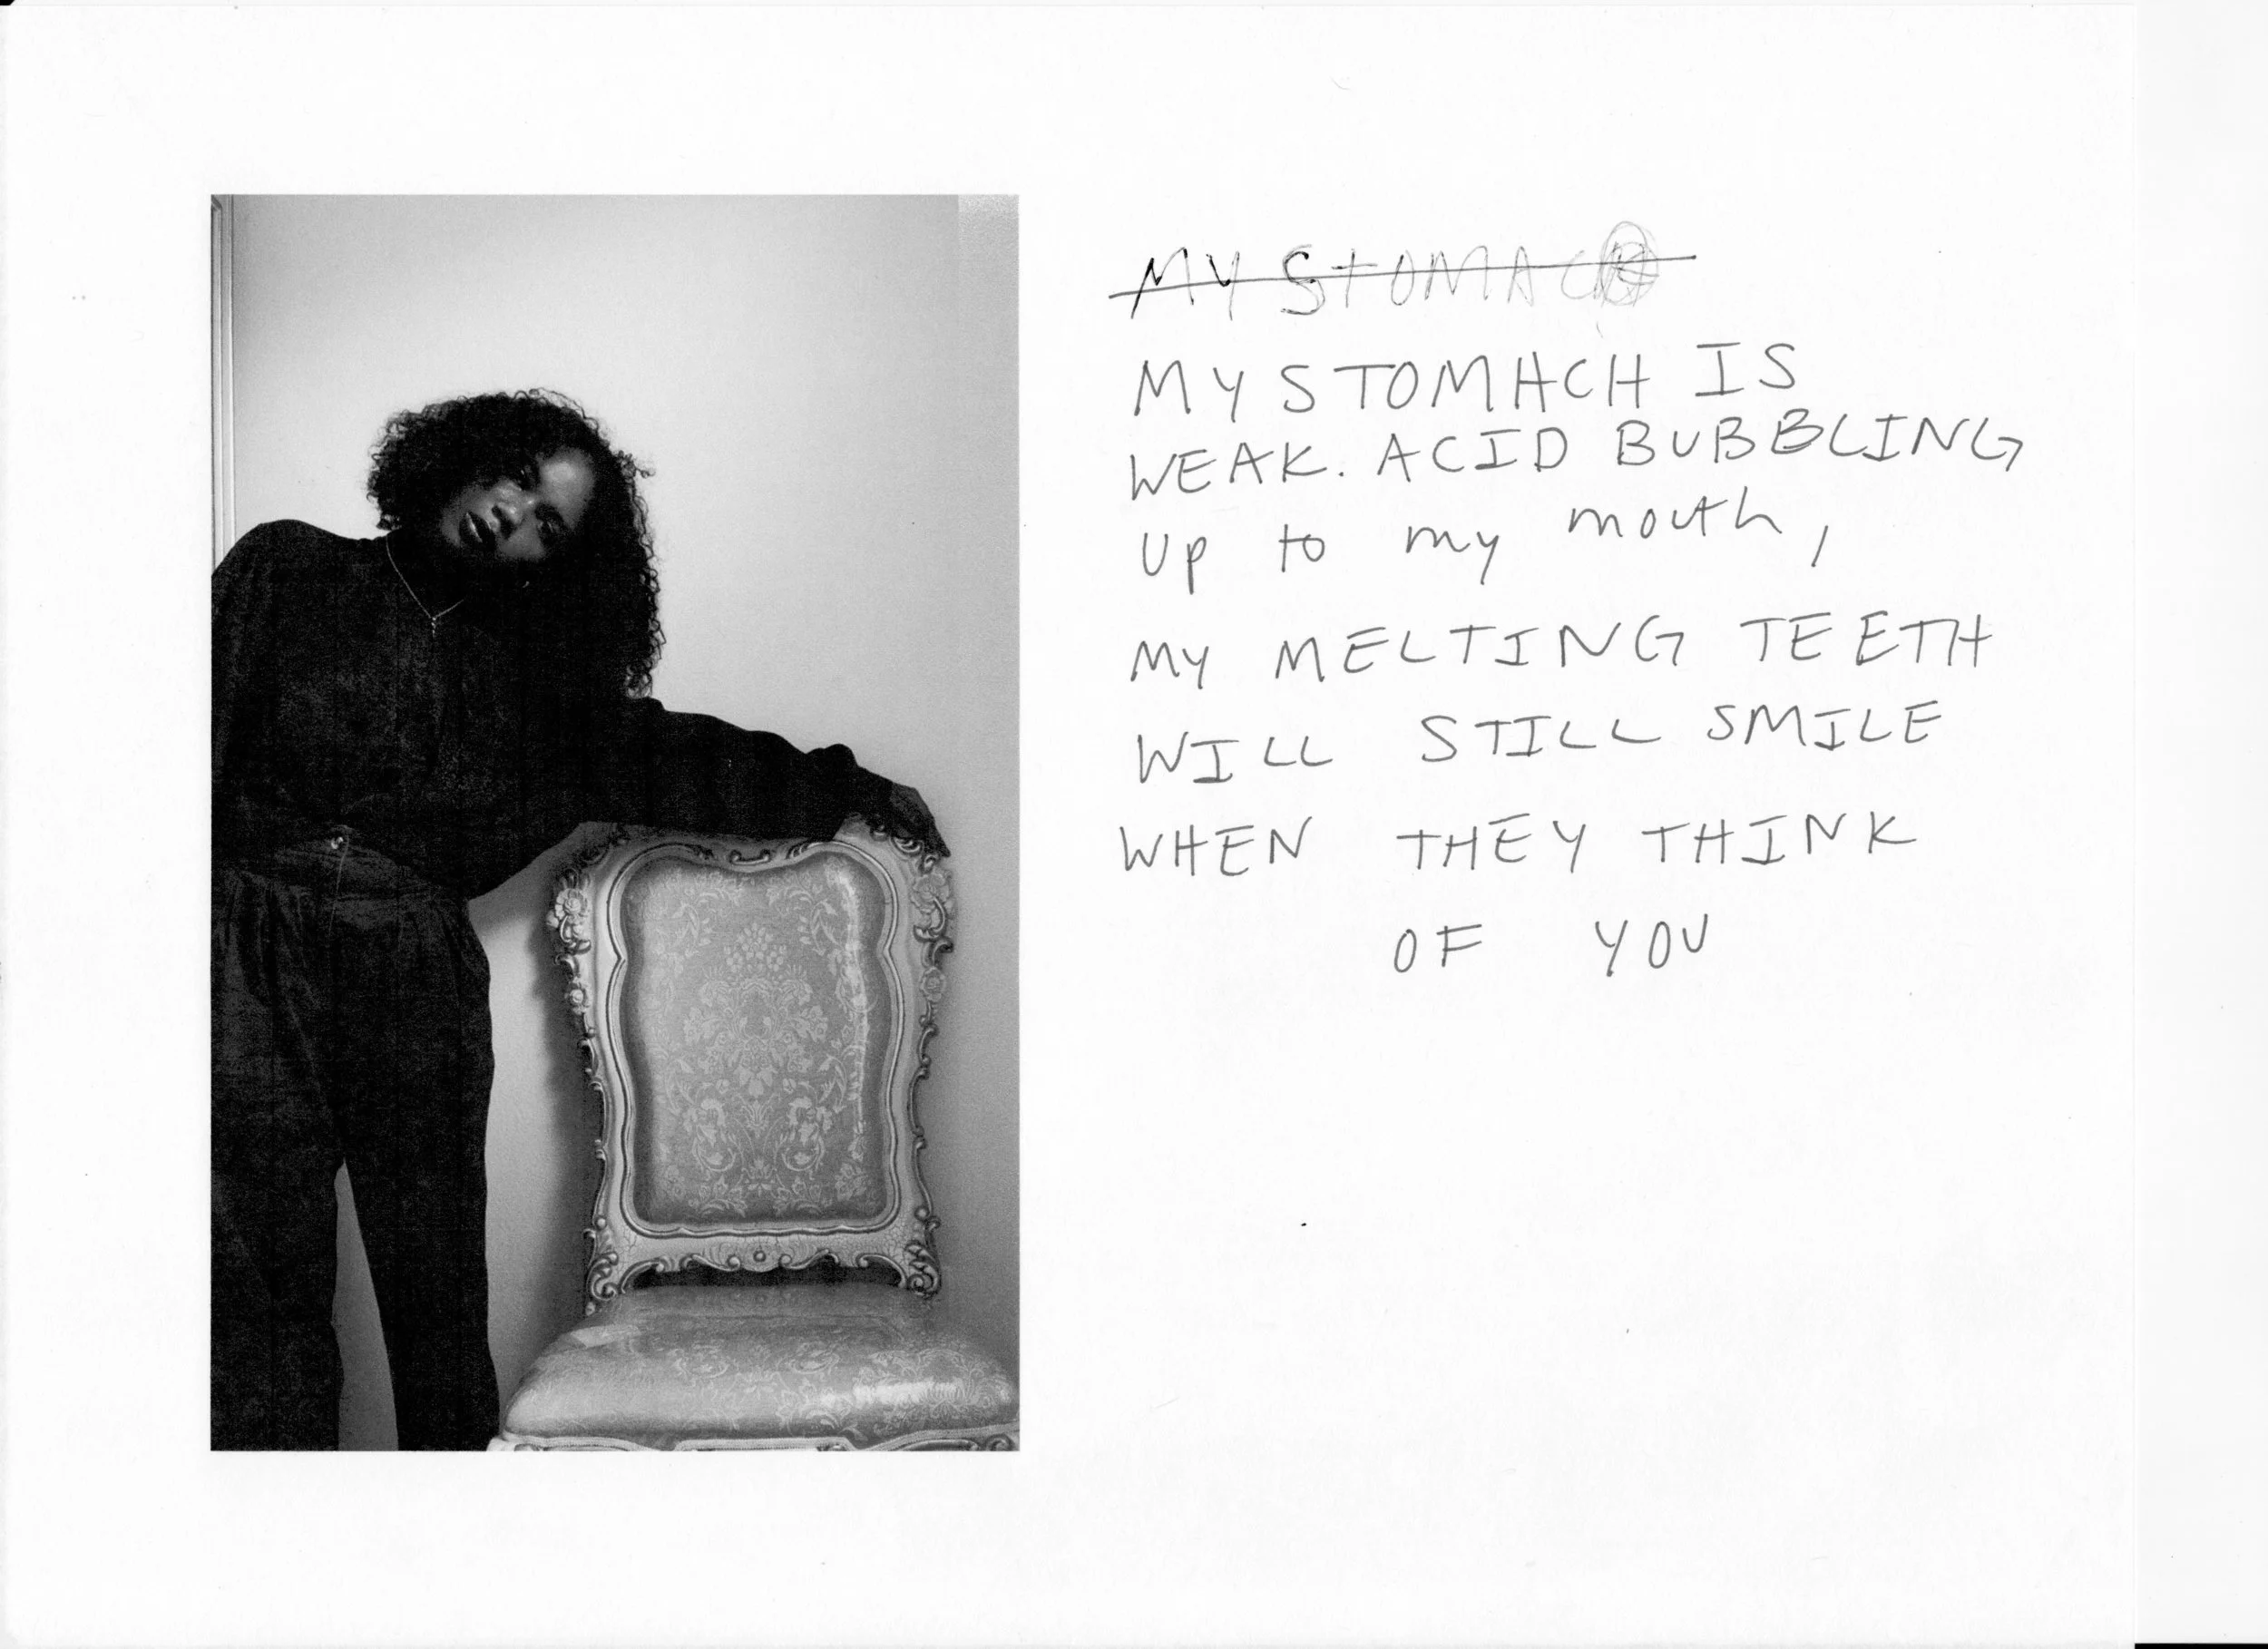 MY STOMAC
MY STOMACH IS
WEAK. ACID BUBBLING
up to my mouth,
MY MELTING TEETH
WILL STILL SMILE
WHEN THEY THINK
OF YOU